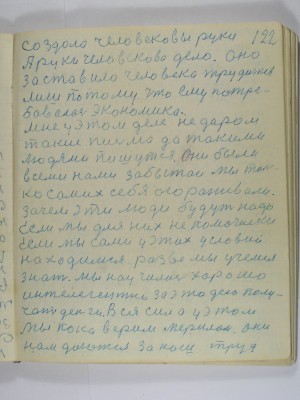 создало человековы руки 122
А руки человеково дело. Оно
заставило человека трудитсь
лиш потому что ему потре-
бовалась экономика.
мне уэтом деле недаром
такие письма да такими
людями пишутся. Они были
всеми нами забытаи мы толь-
ко самих себя огораживали.
Зачем эти люди будут надо
если мы для них не помочники
если мы сами уэтих условий
находимся. разве мы учемся
знат. мы научились хорошо
интелегентно за это дело полу-
чать денги. Вся сила уэтом
мы пока верим мерилом. они
нам даются за наш труд